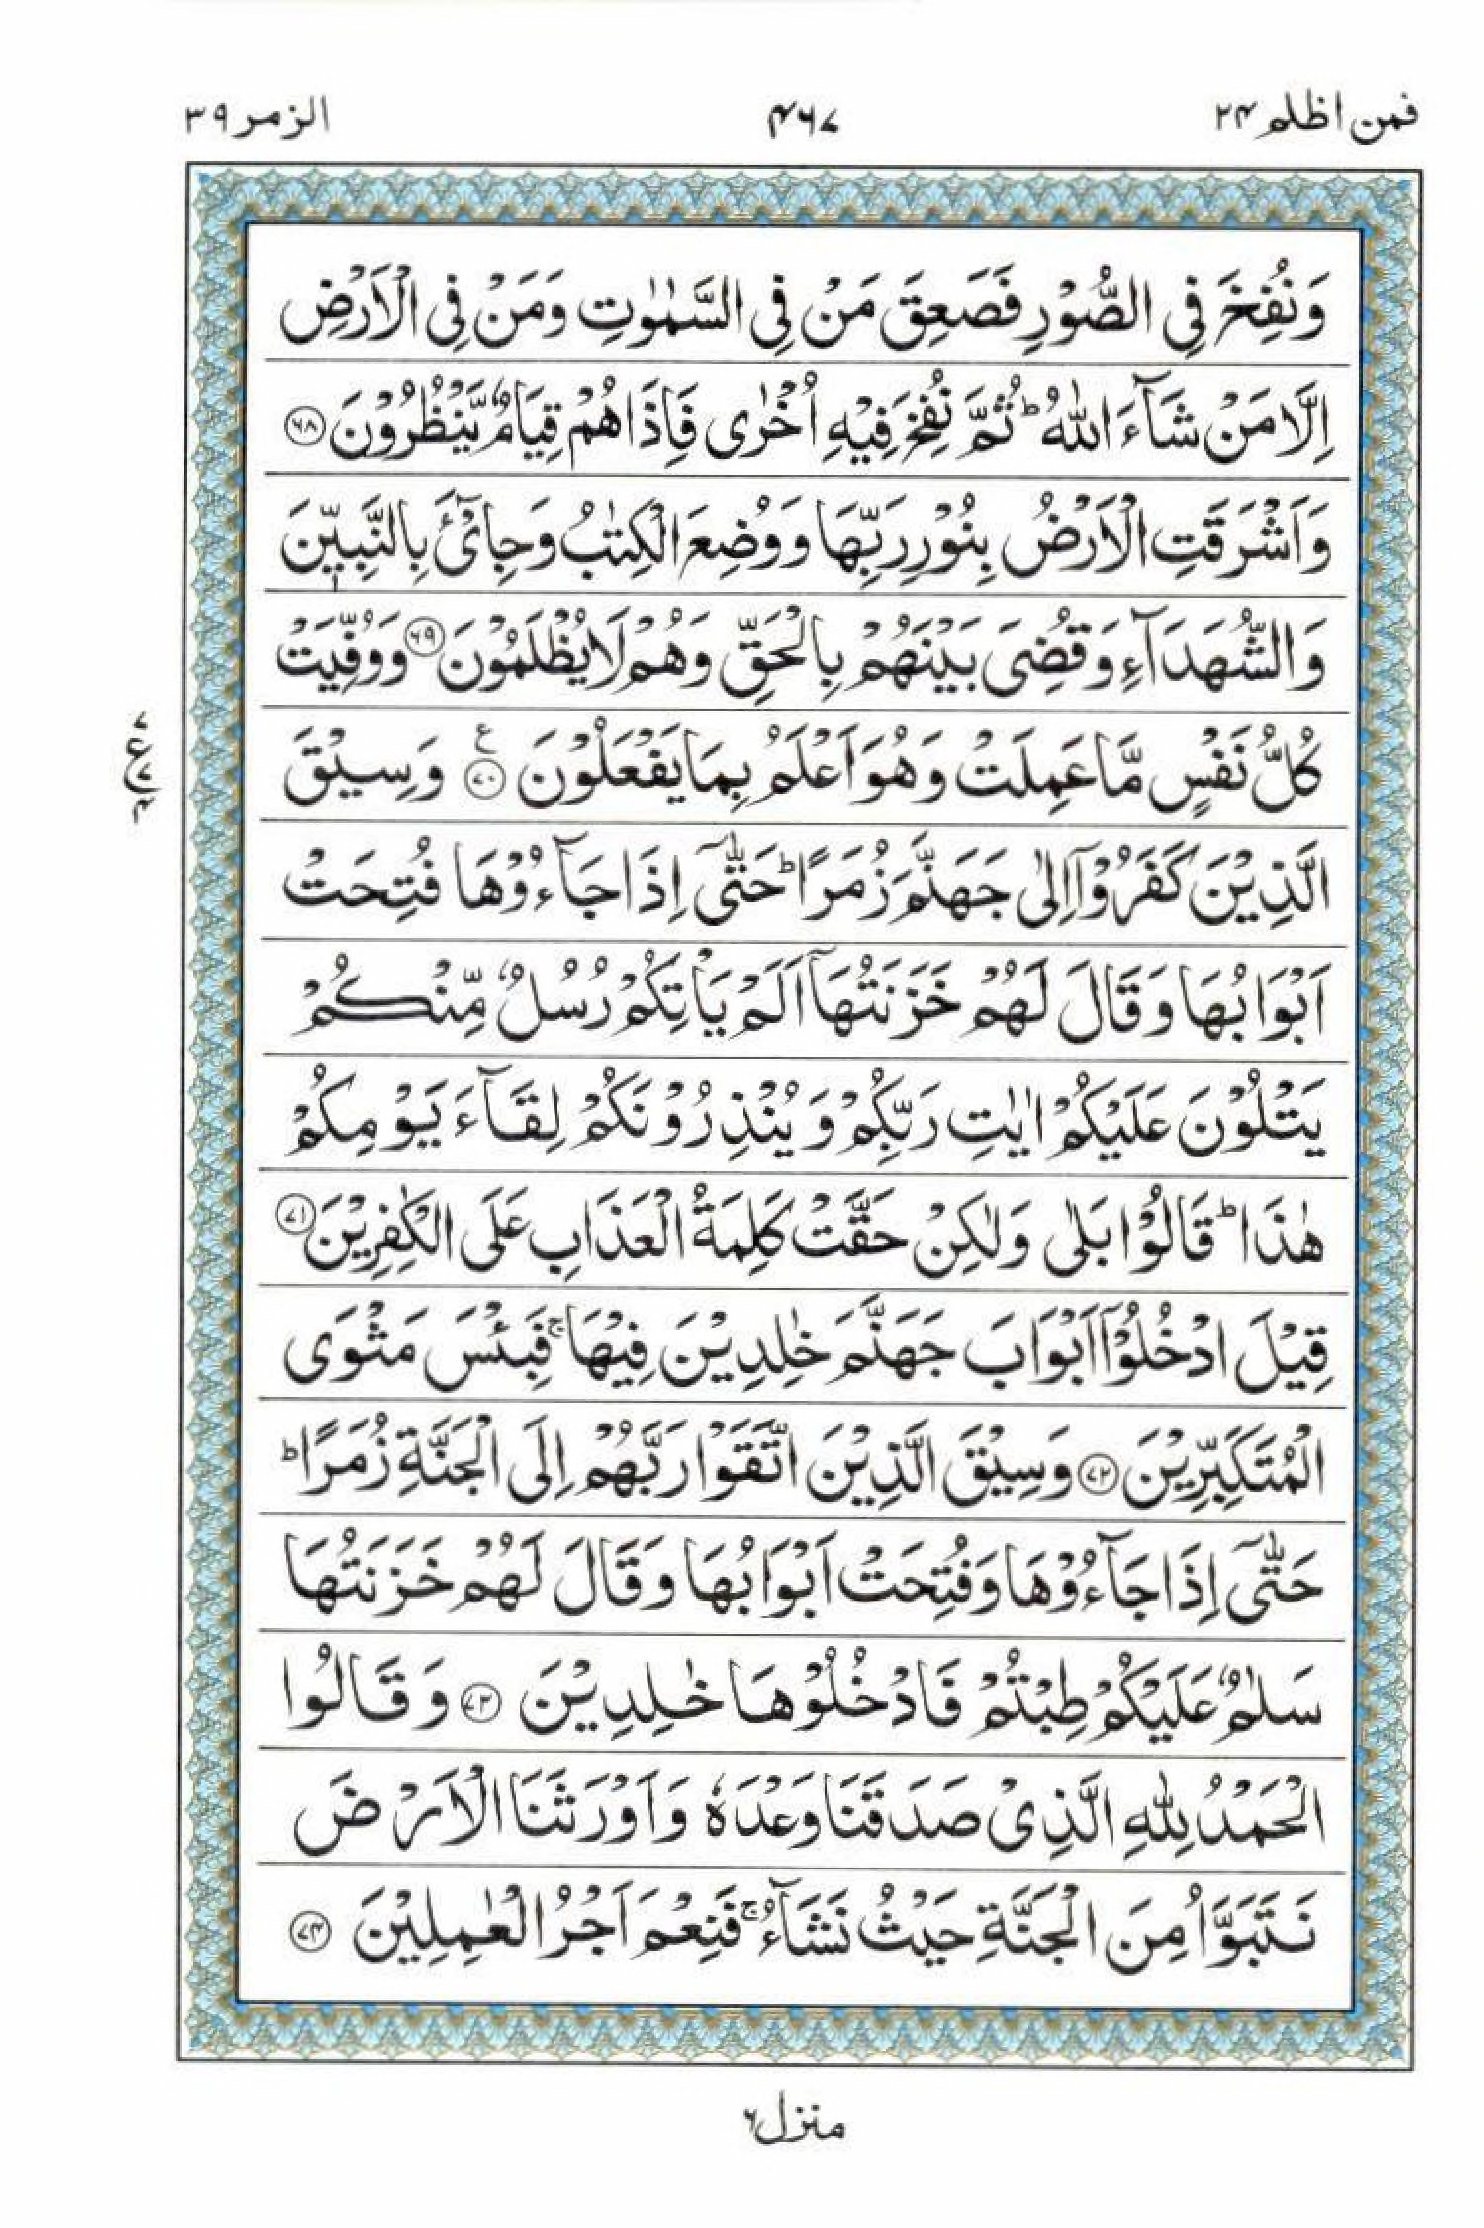 فمن اظلم ٢٤
٤٦٧
الزمر ٣٩
وَنُفِخَ فِی الصُّوْرِ فَصَعِقَ مَنْ فِی السَّمٰوٰتِ وَمَنْ فِی الْاَرْضِ
اِلَّا مَنْ شَآءَ اللّٰهُ ؕ ثُمَّ نُفِخَ فِیْهِ اُخْرٰی فَاِذَا هُمْ قِیَامٌ یَّنْظُرُوْنَ ﴿٦٨﴾
وَاَشْرَقَتِ الْاَرْضُ بِنُوْرِ رَبِّهَا وَوُضِعَ الْكِتٰبُ وَجِایْٓءَ بِالنَّبِیّٖنَ
وَالشُّهَدَآءِ وَقُضِیَ بَیْنَهُمْ بِالْحَقِّ وَهُمْ لَا یُظْلَمُوْنَ ﴿٦٩﴾ وَوُفِّیَتْ
كُلُّ نَفْسٍ مَّا عَمِلَتْ وَهُوَ اَعْلَمُ بِمَا یَفْعَلُوْنَ ﴿٧٠﴾ ع وَسِیْقَ
٧
ع ٧
٤
الَّذِیْنَ كَفَرُوْۤا اِلٰی جَهَنَّمَ زُمَرًا ؕ حَتّٰۤی اِذَا جَآءُوْهَا فُتِحَتْ
اَبْوَابُهَا وَقَالَ لَهُمْ خَزَنَتُهَاۤ اَلَمْ یَاْتِكُمْ رُسُلٌ مِّنْكُمْ
یَتْلُوْنَ عَلَیْكُمْ اٰیٰتِ رَبِّكُمْ وَیُنْذِرُوْنَكُمْ لِقَآءَ یَوْمِكُمْ
هٰذَا ؕ قَالُوْا بَلٰی وَلٰكِنْ حَقَّتْ كَلِمَةُ الْعَذَابِ عَلَی الْكٰفِرِیْنَ ﴿٧١﴾
قِیْلَ ادْخُلُوْۤا اَبْوَابَ جَهَنَّمَ خٰلِدِیْنَ فِیْهَا ۚ فَبِئْسَ مَثْوَی
الْمُتَكَبِّرِیْنَ ﴿٧٢﴾ وَسِیْقَ الَّذِیْنَ اتَّقَوْا رَبَّهُمْ اِلَی الْجَنَّةِ زُمَرًا ؕ
حَتّٰۤی اِذَا جَآءُوْهَا وَفُتِحَتْ اَبْوَابُهَا وَقَالَ لَهُمْ خَزَنَتُهَا
سَلٰمٌ عَلَیْكُمْ طِبْتُمْ فَادْخُلُوْهَا خٰلِدِیْنَ ﴿٧٣﴾ وَقَالُوا
الْحَمْدُ لِلّٰهِ الَّذِیْ صَدَقَنَا وَعْدَهٗ وَاَوْرَثَنَا الْاَرْضَ
نَتَبَوَّاُ مِنَ الْجَنَّةِ حَیْثُ نَشَآءُ ۚ فَنِعْمَ اَجْرُ الْعٰمِلِیْنَ ﴿٧٤﴾
منزل ٦